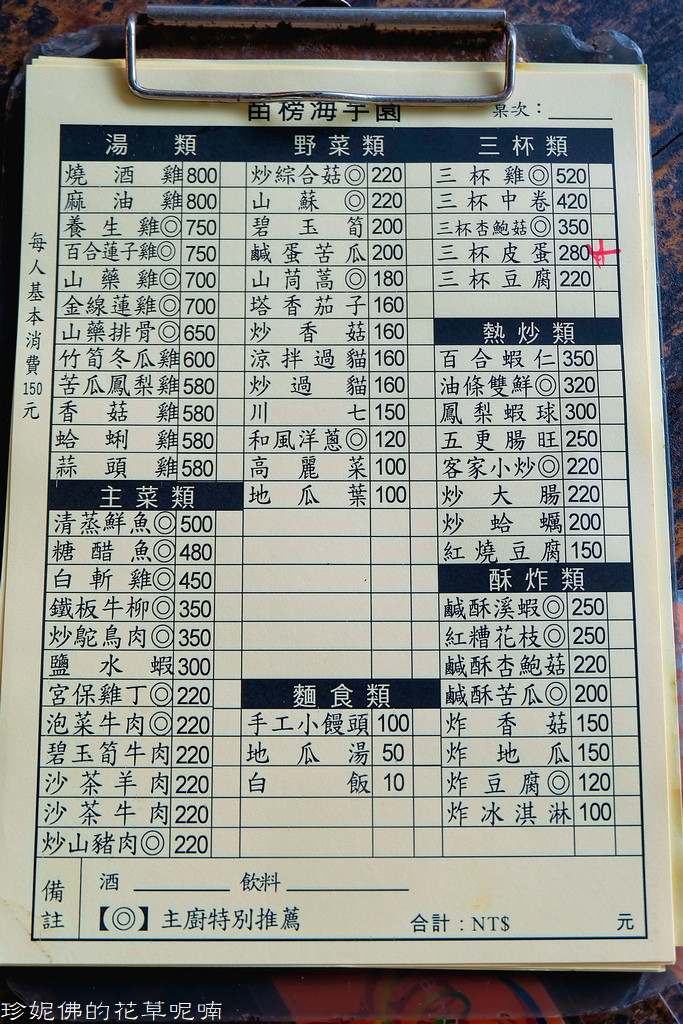 苗榜海芋園
桌次：
每人基本消費150元
湯類
燒酒雞 800
麻油雞 800
養生雞◎ 750
百合蓮子雞◎ 750
山藥雞◎ 700
金線蓮雞◎ 700
山藥排骨◎ 650
竹筍冬瓜雞 600
苦瓜鳳梨雞 580
香菇雞 580
蛤蜊雞 580
蒜頭雞 580
主菜類
清蒸鮮魚◎ 500
糖醋魚◎ 480
白斬雞◎ 450
鐵板牛柳◎ 350
炒鴕鳥肉◎ 350
鹽水蝦 300
宮保雞丁◎ 220
泡菜牛肉◎ 220
碧玉筍牛肉 220
沙茶羊肉 220
沙茶牛肉 220
炒山豬肉◎ 220
野菜類
炒綜合菇◎ 220
山蘇◎ 220
碧玉筍 200
鹹蛋苦瓜 200
山茼蒿◎ 180
塔香茄子 160
炒香菇 160
涼拌過貓 160
炒過貓 160
川七 150
和風洋蔥◎ 120
高麗菜 100
地瓜葉 100
麵食類
手工小饅頭 100
地瓜湯 50
白飯 10
三杯類
三杯雞◎ 520
三杯中卷 420
三杯杏鮑菇◎ 350
三杯皮蛋 280
三杯豆腐 220
熱炒類
百合蝦仁 350
油條雙鮮◎ 320
鳳梨蝦球 300
五更腸旺 250
客家小炒◎ 220
炒大腸 220
炒蛤蠣 200
紅燒豆腐 150
酥炸類
鹹酥溪蝦◎ 250
紅糟花枝◎ 250
鹹酥杏鮑菇 220
鹹酥苦瓜◎ 200
炸香菇 150
炸地瓜 150
炸豆腐◎ 120
炸冰淇淋 100
備註
酒 飲料
【◎】主廚特別推薦
合計：NT$ 元
珍妮佛的花草呢喃